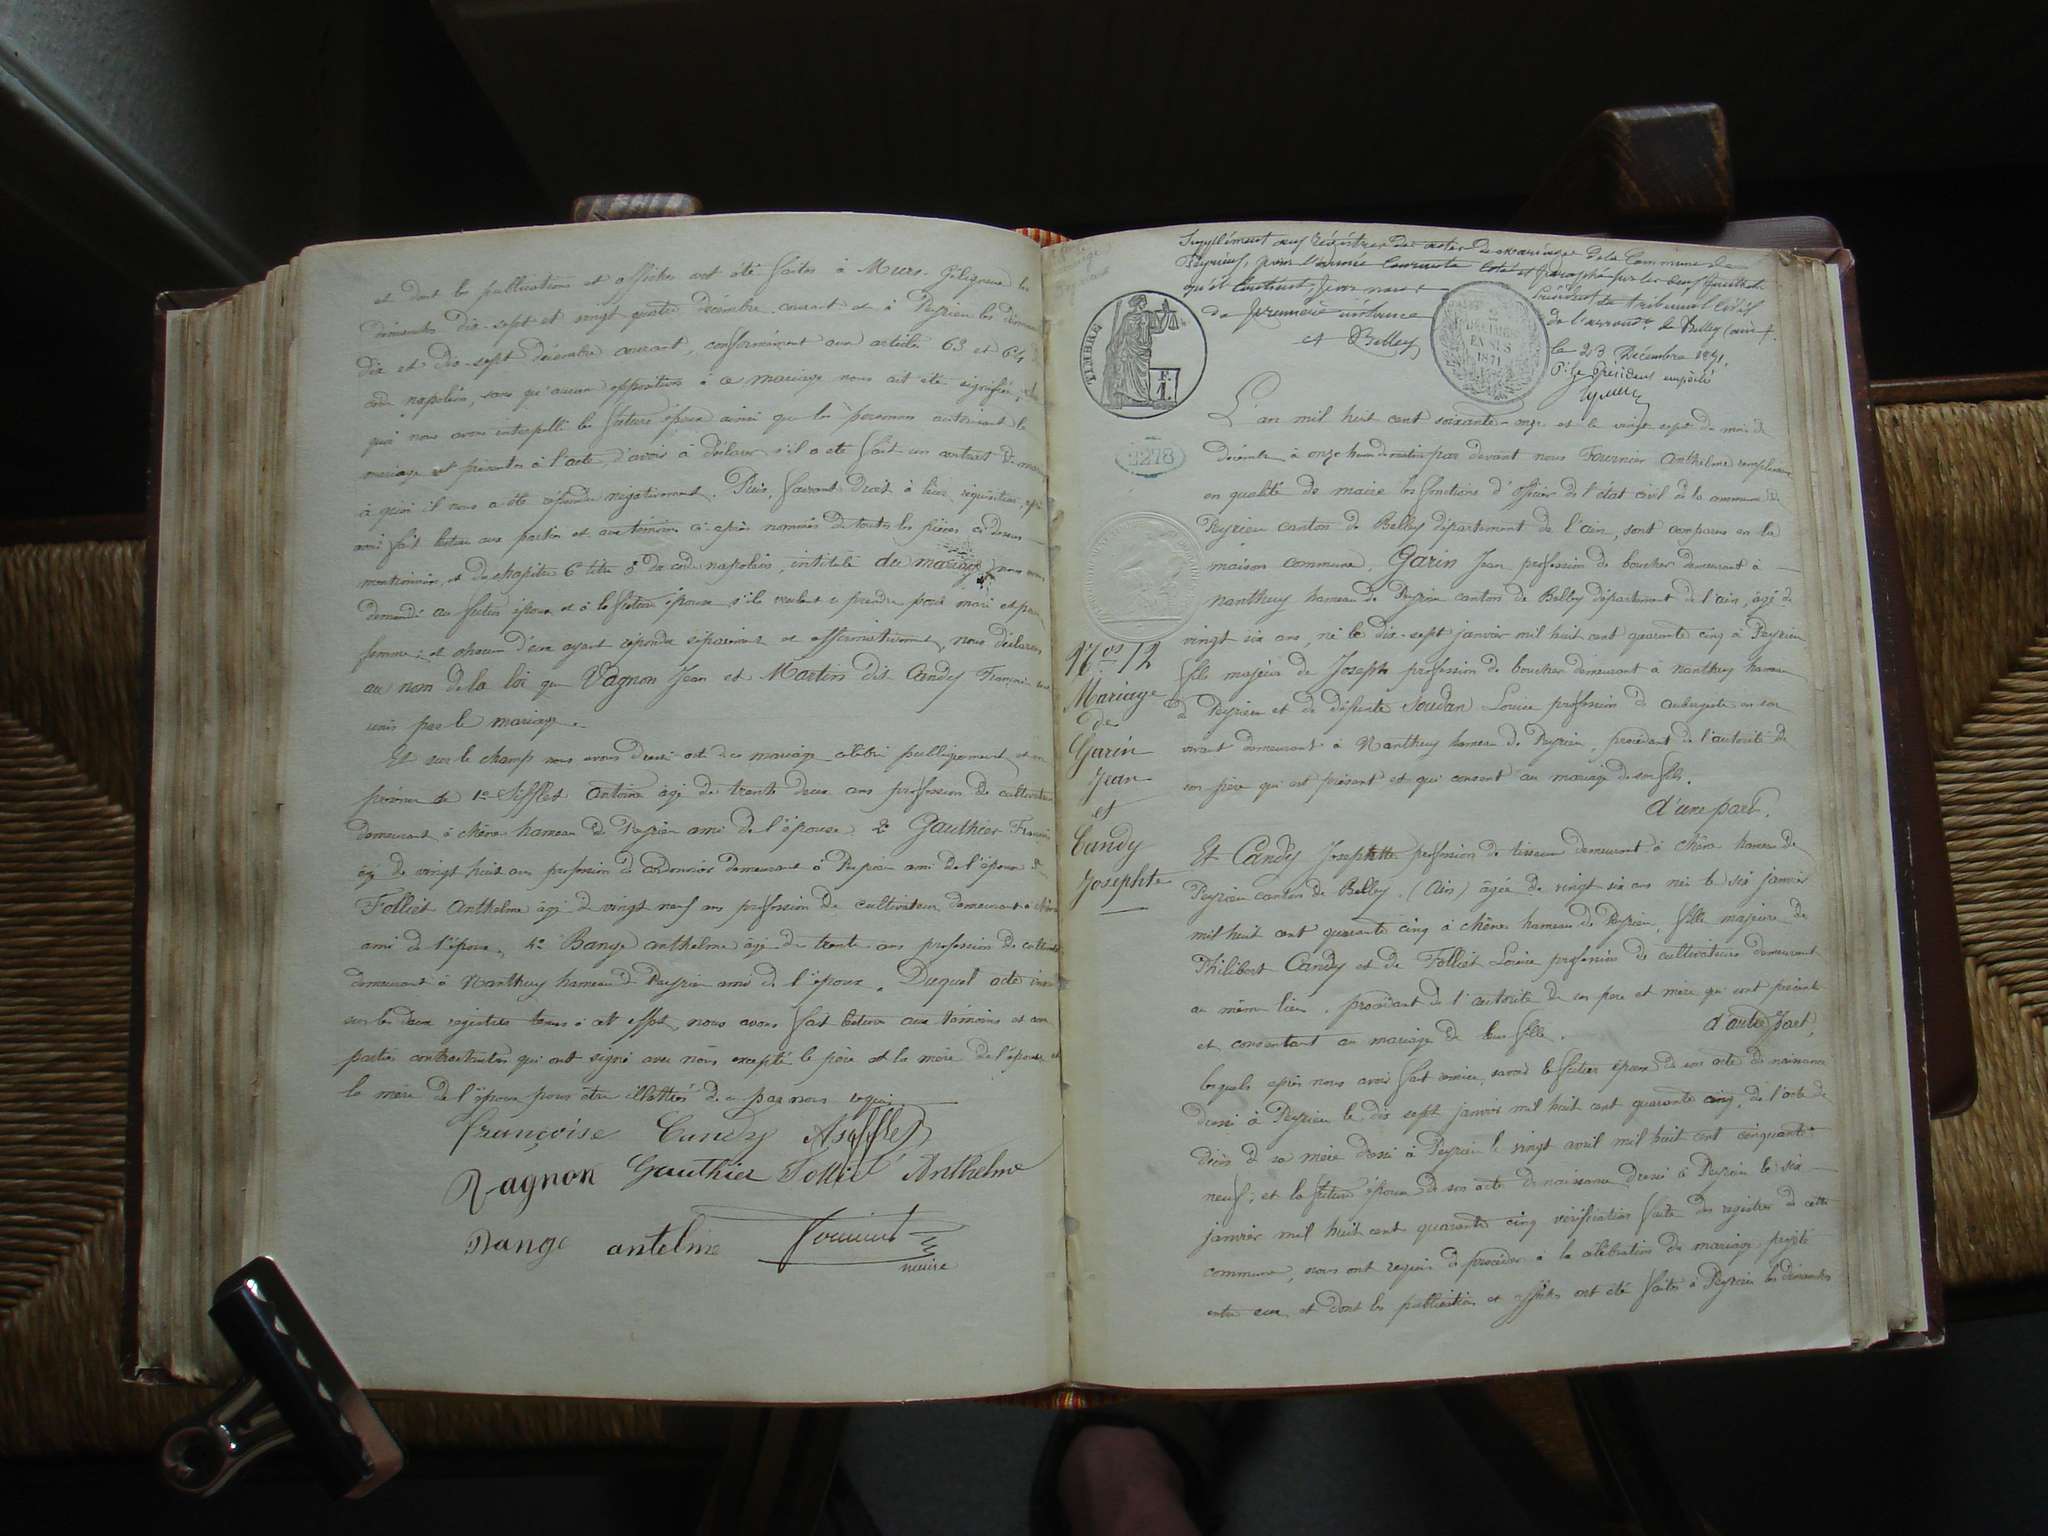 et dont les publications et affiches ont été faites à Murs Gélignieux les
dimanches dix-sept et vingt quatre décembre courant et à Peyrieu les dimanches
dix et dix-sept décembre courant, conformément aux articles 63 et 64 du
code napoléon, sans qu'aucune opposition à ce mariage nous ait été signifiée,
quoi nous avons interpellé les futurs époux ainsi que les personnes autorisant le
mariage et présentes à l'acte, d'avoir à déclarer s'il a été fait un contrat de
à quoi il nous a été répondu négativement. Puis, faisant droit à leur réquisition,
avoir fait lecture aux parties et aux témoins ci-après nommés de toutes les pièces ci-dessus
mentionnées, et du chapitre 6 titre 5 du code napoléon, intitulé du mariage, nous avons
demandé au futur époux et à la future épouse s'ils veulent se prendre pour mari et pour
femme; et chacun d'eux ayant répondu séparément et affirmativement, nous déclarons
au nom de la loi que Vagnon Jean et Martin dit Candy Françoise sont
unis par le mariage.
Et sur le champ nous avons dressé acte de ce mariage célébré publiquement et en
présence de 1º Sifflet Antoine âgé de trente deux ans profession de cultivateur
demeurant à chêne hameau de Peyrieu ami de l'épouse. 2º Gauthier François
âgé de vingt huit ans profession de cordonnier demeurant à Peyrieu ami de l'époux
Folliet Anthelme âgé de vingt neuf ans profession de cultivateur demeurant à chêne
ami de l'époux, 4º Bange anthelme âgé de trente ans profession de cultivateur
demeurant à Nanthuy hameau de Peyrieu ami de l'époux. Duquel acte
sur les deux registres tenus à cet effet, nous avons fait lecture aux témoins et aux
parties contractantes qui ont signé avec nous excepté le père et la mère de l'épouse et
la mère de l'époux pour être illettrés de ce par nous requis
françoise Candy ASifflet
Vagnon Gauthier Folliet Anthelme
Bange antelme Fournier
maire
Supplément aux régistres des actes de mariage de la Commune de
Peyrieu, pour l'année Courante Coté et paraphé sur les deux feuillets
qu'il Contient, par nous Président du tribunal Civil
de première instance de l'arrondt de Belley (ain).
et Belley le 23 Décembre 1871,
P. le Président empêché
TIMBRE
F.
1.
2 DÉCIMES
EN SUS
1871
2278
L'an mil huit cent soixante-onze et le vingt sept du mois de
décembre à onze heures du matin par devant nous Fournier Anthelme remplissant
en qualité de maire les fonctions d'officier de l'état civil de la commune de
Peyrieu canton de Belley département de l'ain, sont comparus en la
maison commune, Garin Jean profession de boucher demeurant à
Nanthuy hameau de Peyrieu canton de Belley département de l'ain, âgé de
vingt six ans, né le dix-sept janvier mil huit cent quarante cinq à Peyrieu,
fils majeur de Joseph profession de boucher demeurant à Nanthuy hameau
de Peyrieu et de défunte Soudan Louise profession de aubergiste en son
vivant demeurant à Nanthuy hameau de Peyrieu, procédant de l'autorité de
son père qui est présent et qui consent au mariage de son fils.
d'une part.
Nos 12
Mariage
de
Garin
Jean
et
Candy
Josephte
Et Candy Josephtte profession de tisseuse demeurant à chêne hameau de
Peyrieu canton de Belley, (Ain) âgée de vingt six ans née le six janvier
mil huit cent quarante cinq à chêne hameau de Peyrieu, fille majeure de
Philibert Candy et de Folliet Louise profession de cultivateurs demeurant
au même lieu, procédant de l'autorité de ses père et mère qui sont présents
et consentant au mariage de leur fille. d'autre part,
lesquels après nous avoir fait remise, savoir le futur époux de son acte de naissance
dressé à Peyrieu le dix sept janvier mil huit cent quarante cinq, de l'acte de
décès de sa mère dressé à Peyrieu le vingt avril mil huit cent cinquante
neuf; et la future épouse de son acte de naissance dressé à Peyrieu le six
janvier mil huit cent quarante cinq vérification faite des registres de cette
commune, nous ont requis de procéder à la célébration du mariage projeté
entre eux, et dont les publications et affiches ont été faites à Peyrieu les dimanches